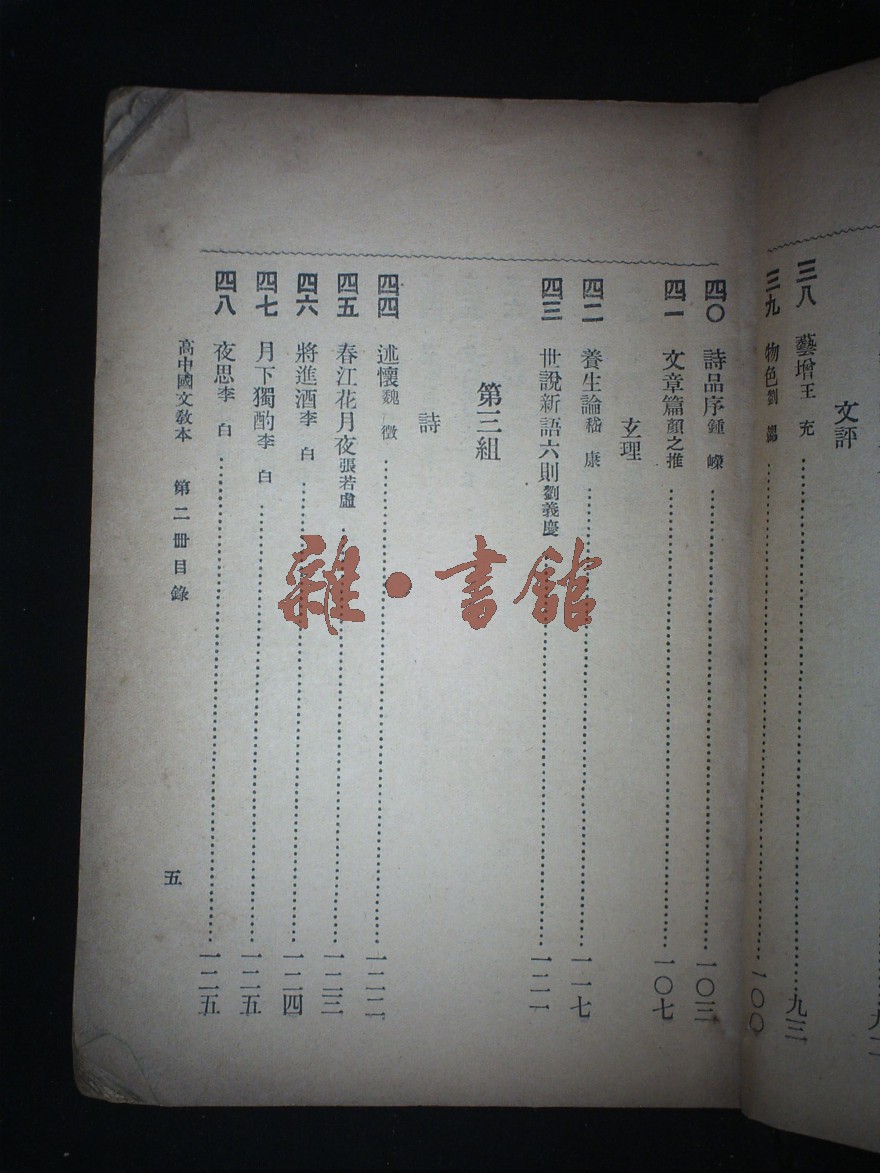 文評
三八 藝增 王充 九三
三九 物色 劉勰 一〇〇
四〇 詩品序 鍾嶸 一〇三
四一 文章篇 顏之推 一〇七
玄理
四二 養生論 嵇康 一一七
四三 世說新語六則 劉義慶 一二一
第三組
詩
四四 述懷 魏徵 一二二
四五 春江花月夜 張若虛 一二三
四六 將進酒 李白 一二四
四七 月下獨酌 李白 一二五
四八 夜思 李白 一二五
高中國文敎本 第二冊目錄
五
雜·書館